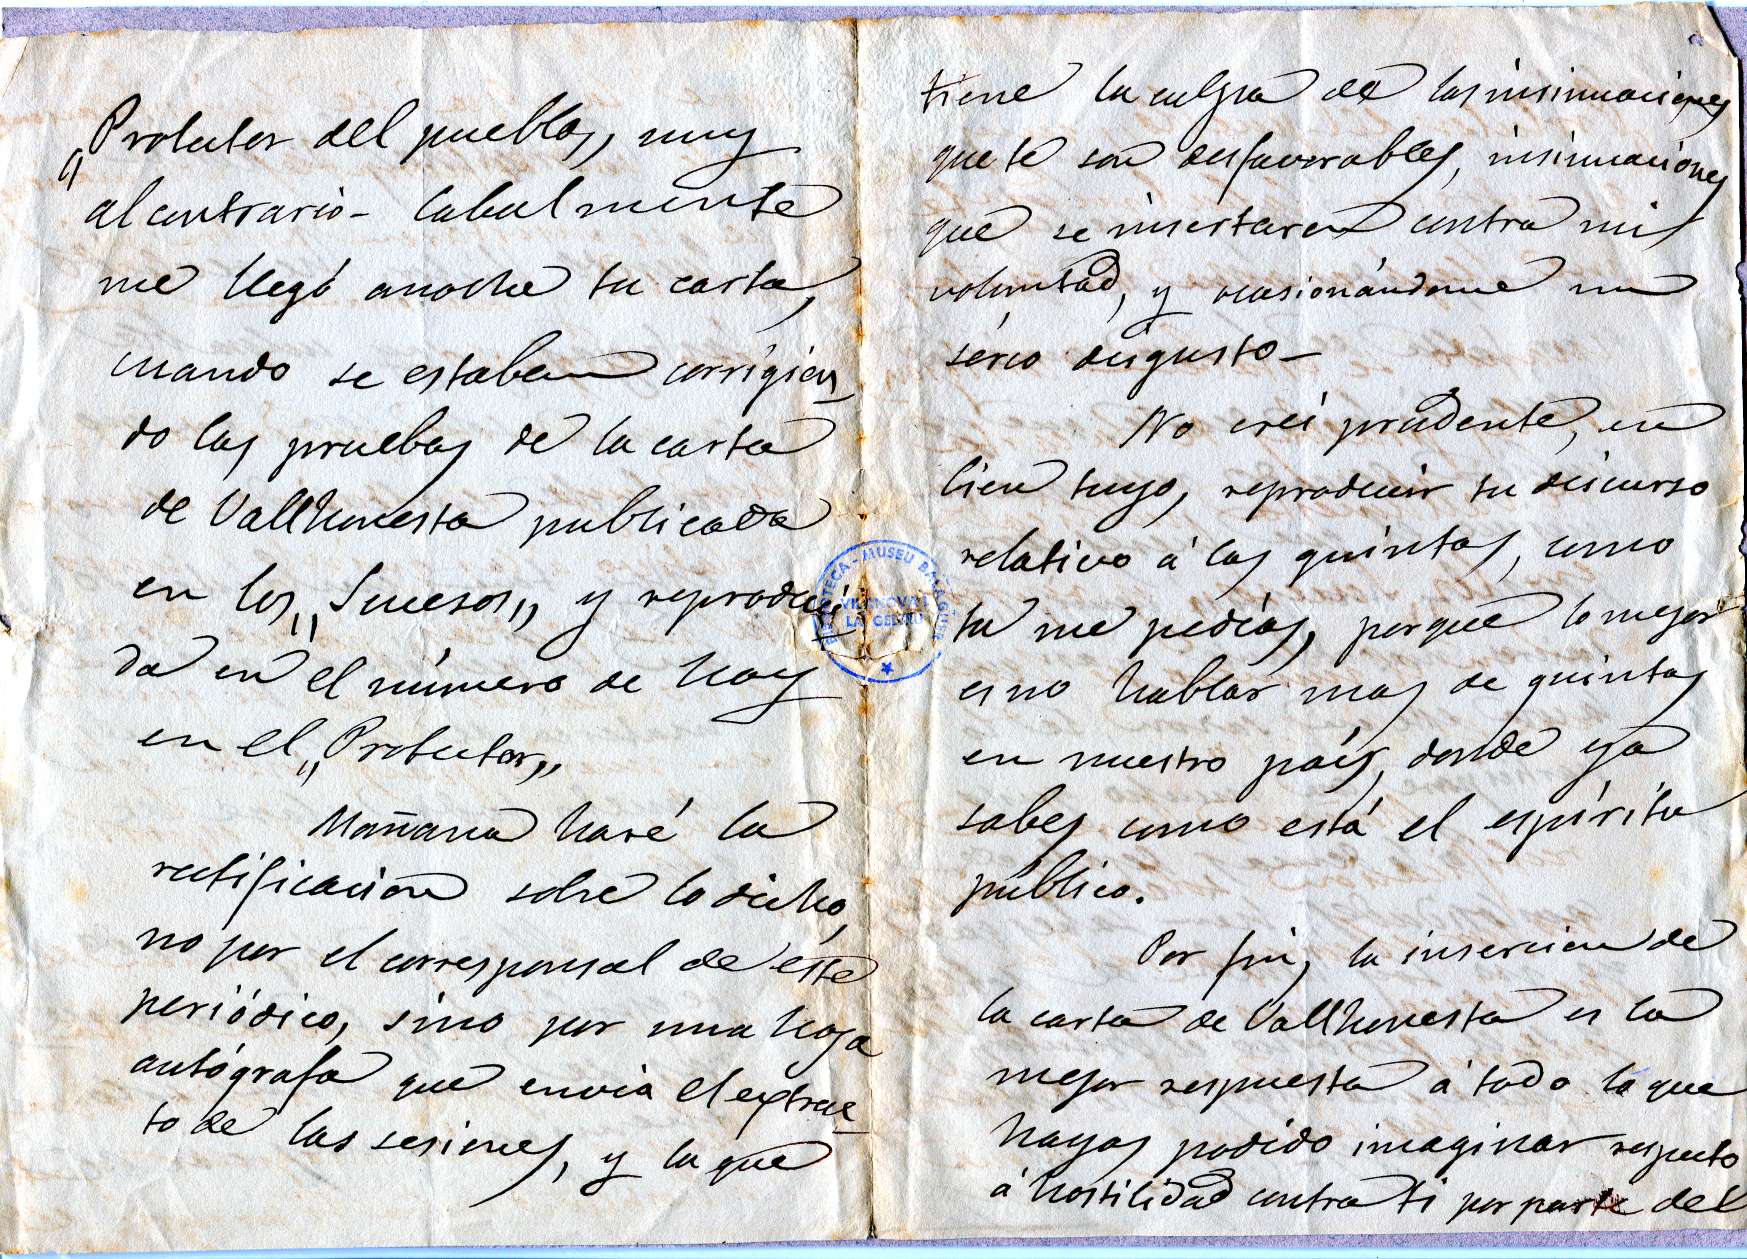 „Protector del pueblo„, muy
al contrario_ Cabalmente
me llegó anoche tu carta,
cuando se estaban corrigien_
do las pruebas de la carta
de Vallhonesta publicada
en los „Sucesos„ y reproduci_
da en el número de hoy
en el „Protector„
Mañana haré la
rectificacion sobre lo dicho,
no por el corresponsal de éste
periódico, sino por una hoja
autógrafa que envia el extrac_
to de las sesiones, y la que
tiene la culpa de las insinuaciones
que te son desfavorables, insinuaciones
que se insertaron contra mi
voluntad, y ocasionándome un
sério disgusto_
No creí prudente, en
bien tuyo, reproducir tu discurso
relativo á las quintas, como
tu me pedías, porque lo mejor
es no hablar mas de quintas
en nuestro país, donde ya
sabes como está el espíritu
público.
Por fin, la insercion de
la carta de Vallhonesta es la
mejor respuesta á todo lo que
hayas podido imaginar respecto
á hostilidad contra ti por parte del
BIBLIOTECA - MUSEU BALAGUER
VILANOVA I
LA GELTRU